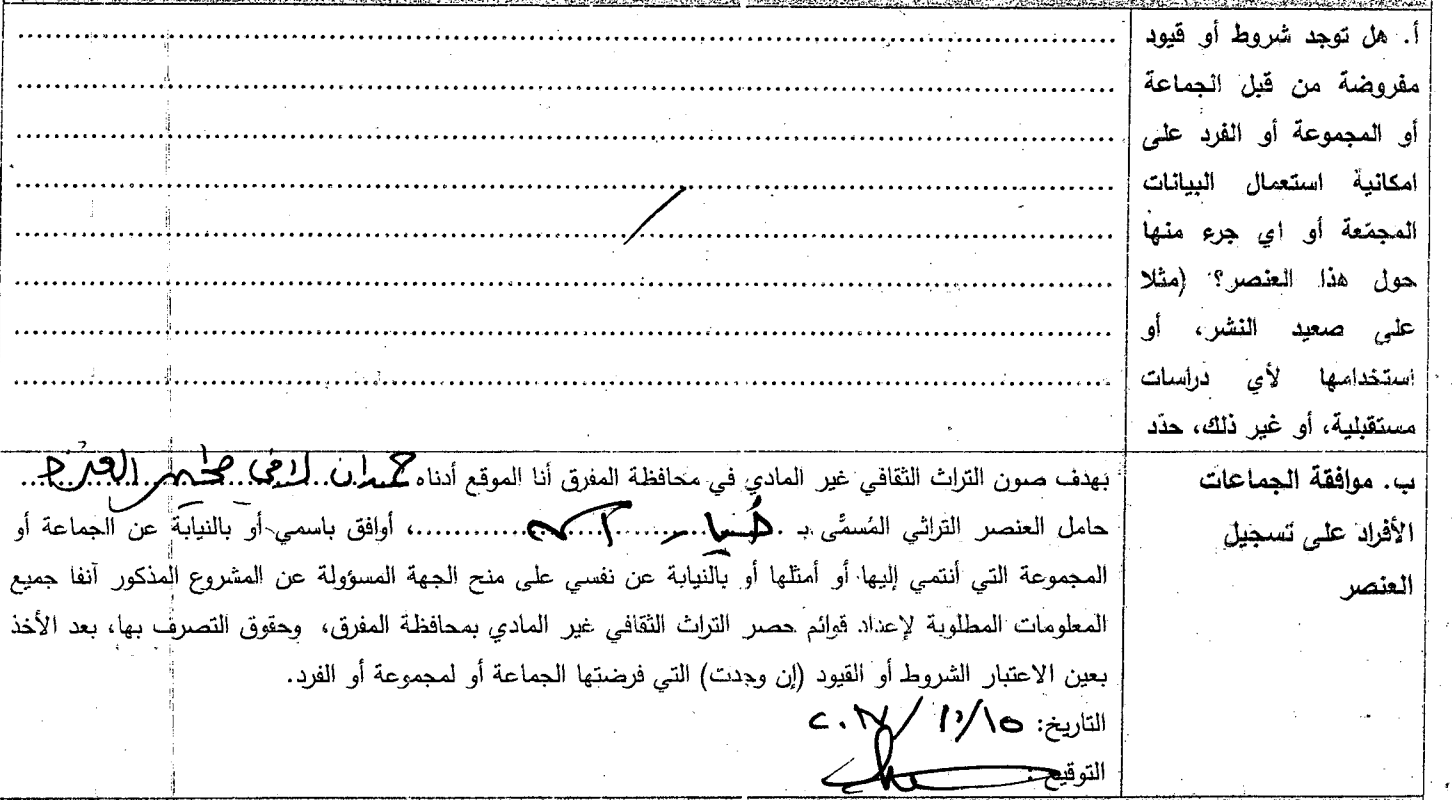 أ. هل توجد شروط أو قيود
مفروضة من قبل الجماعة
أو المجموعة أو الفرد على
امكانية استعمال البيانات
المجمّعة أو اي جرء منها
حول هذا العنصر؟ (مثلا
على صعيد النشر، أو
استخدامها لأي دراسات
مستقبلية، أو غير ذلك، حدّد
ب. موافقة الجماعات
الأفراد على تسجيل
العنصر
بهدف صون التراث الثقافي غير المادي في محافظة المفرق أنا الموقع أدناه حمدان لافي
حامل العنصر التراثي المُسمَّى بـ ........، أوافق باسمي أو بالنيابة عن الجماعة أو
المجموعة التي أنتمي إليها أو أمثلها أو بالنيابة عن نفسي على منح الجهة المسؤولة عن المشروع المذكور آنفا جميع
المعلومات المطلوبة لإعداد قوائم حصر التراث الثقافي غير المادي بمحافظة المفرق، وحقوق التصرف بها، بعد الأخذ
بعين الاعتبار الشروط أو القيود (إن وجدت) التي فرضتها الجماعة أو لمجموعة أو الفرد.
التاريخ:
التوقيع: